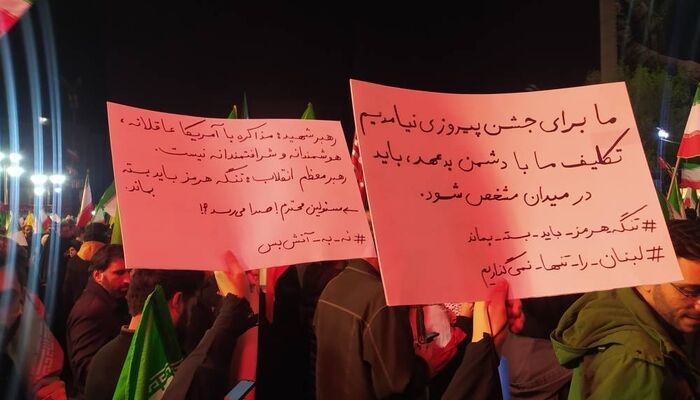 رهبر شهید: مذاکره با آمریکا عاقلانه،
هوشمندانه و شرافتمندانه نیست.
رهبر معظم انقلاب: تنگه هرمز باید بسته
بماند.
مسئولین محترم! صدا می‌رسد؟!
#نه_به_آتش‌بس
ما برای جشن پیروزی نیامدیم
تکلیف ما با دشمن بدعهد، باید
در میدان مشخص شود.
#تنگه_هرمز_باید_بسته_بماند
#لبنان_را_تنها_نمی‌گذاریم